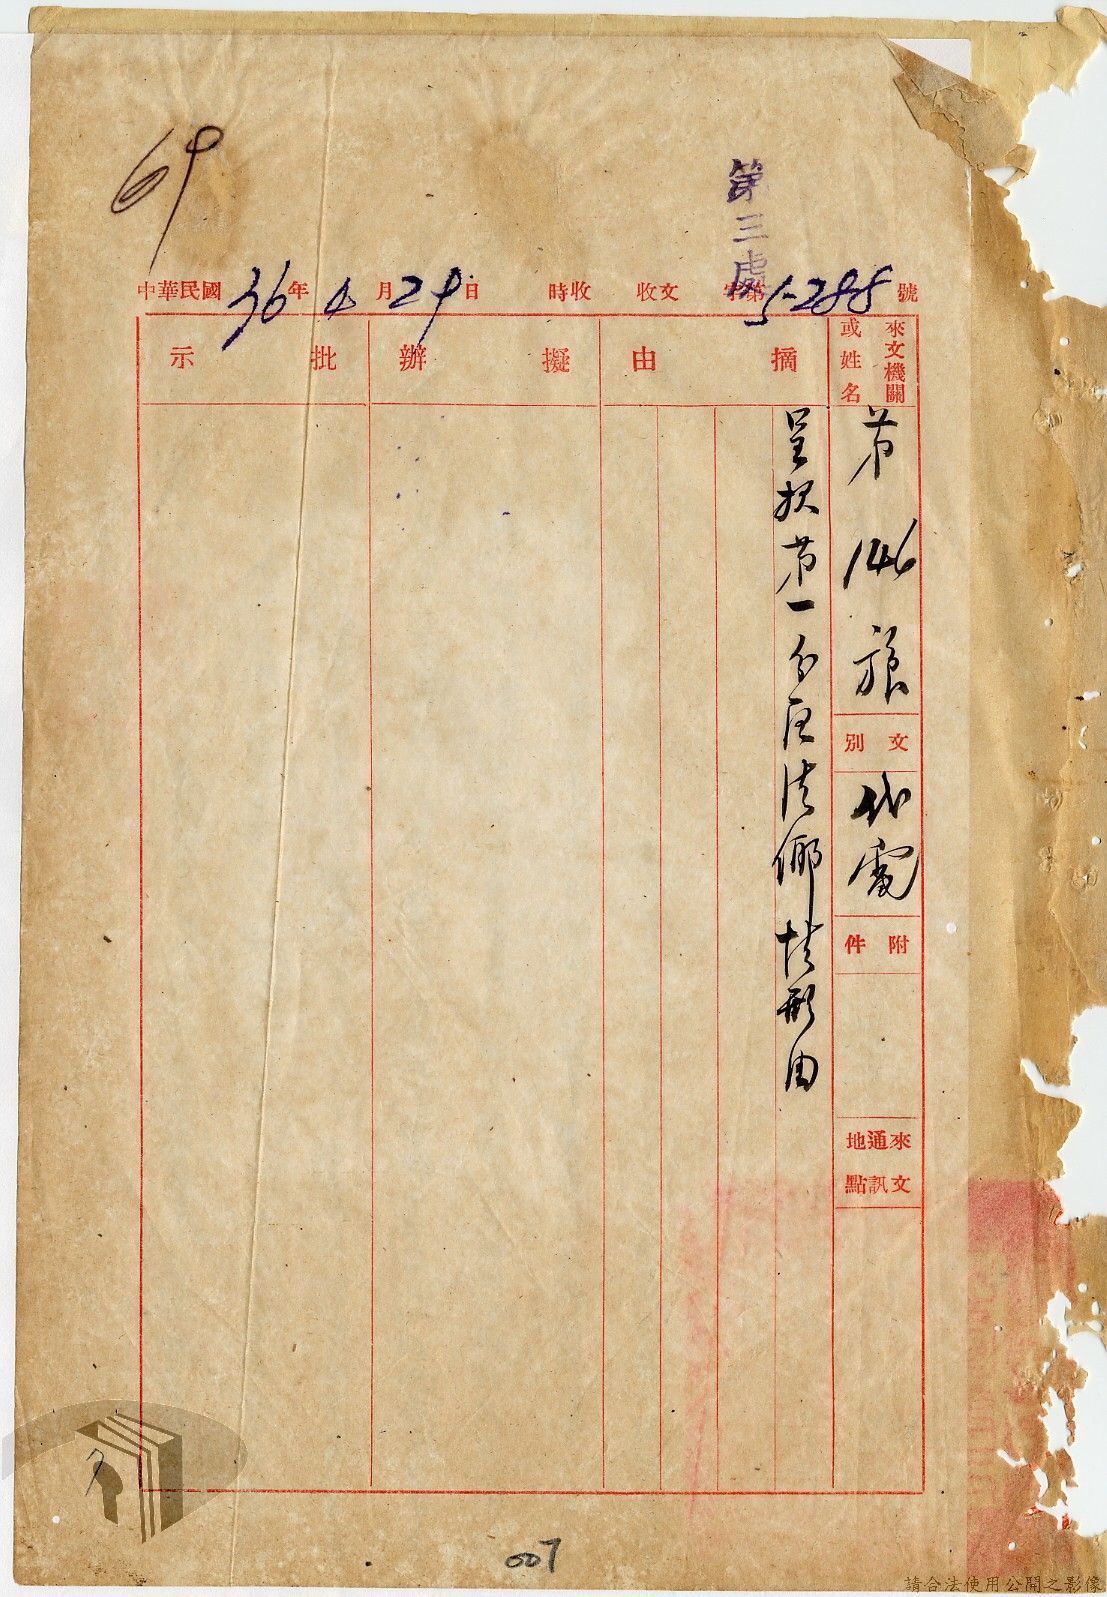 69
第三處
中華民國36年4月29日 時收 收文 字第5288號
來文機關或姓名
第146旅
文別
代電
附件
來文通訊地點
摘由
呈报第一分区清鄉情形由
擬辦
批示
007
請合法使用公開之影像